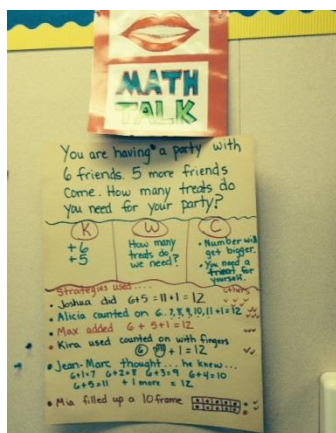 MATH
TALK
You are having a party with
6 friends. 5 more friends
come. How many treats do
you need for your party?
K
W
C
+6
+5
How many
treats do
we need?
• Number will
get bigger.
• You need a
treat for
yourself.
Strategies used....
others
• Joshua did 6+5=11+1=12
• Alicia counted on 6..7,8,9,10,11+1=12
• Max added 6+5+1=12
• Kira used counted on with fingers
6 +1=12
• Jean-Marc thought... he knew...
6+1=7 6+2=8 6+3=9 6+4=10
6+5=11 +1 more = 12
• Mia filled up a 10 frame